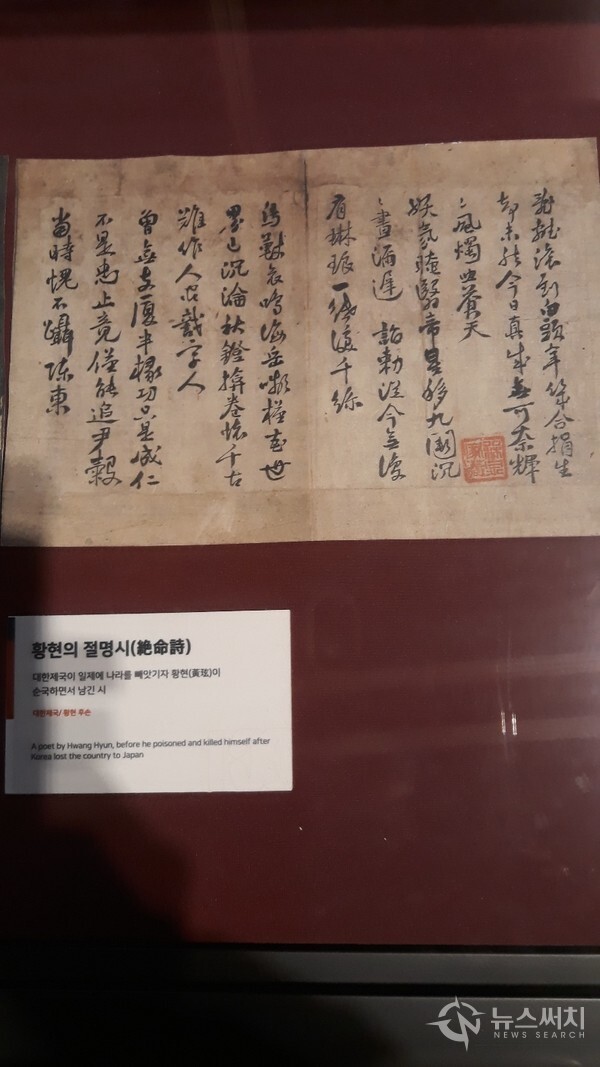 亂離滾到白頭年幾合捐生
却未然今日真成無可奈輝
〻風燭照蒼天
妖氛晻翳帝星移九闕沉
〻晝漏遲 詔勅從今無復
有琳琅一紙淚千絲
鳥獸哀鳴海岳嚬槿花世
界已沉淪秋鐙揜卷懷千古
難作人間識字人
曾無支厦半椽功只是成仁
不是忠止竟僅能追尹穀
當時愧不躡陳東
황현의 절명시(絶命詩)
대한제국이 일제에 나라를 빼앗기자 황현(黃玹)이
순국하면서 남긴 시
대한제국/ 황현 후손
A poet by Hwang Hyun, before he poisoned and killed himself after
Korea lost the country to Japan
뉴스써치
NEWS SEARCH